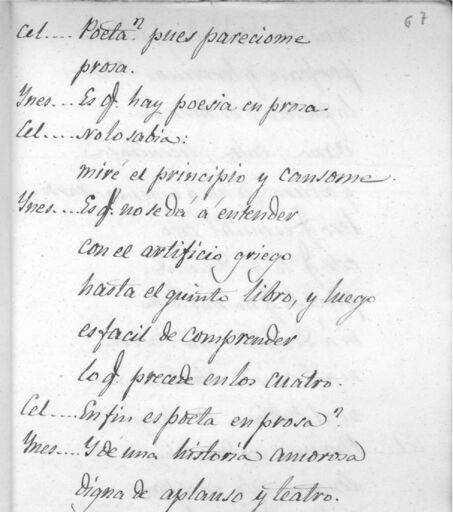 67
Cel.... Poeta?ⁿ pues pareciome
prosa.
Ynes.... Es q̃ hay poesia en prosa.
Cel.... No lo sabia:
mire el principio y cansome.
Ynes.... Es q̃ no se dá á entender
con el artificio griego
hasta el quinto libro, y luego
es facil de comprender
lo q̃ precede en los cuatro.
Cel.... En fin es poeta en prosa?ⁿ
Ynes.... Y de una historia amorosa
digna de aplauso y teatro.